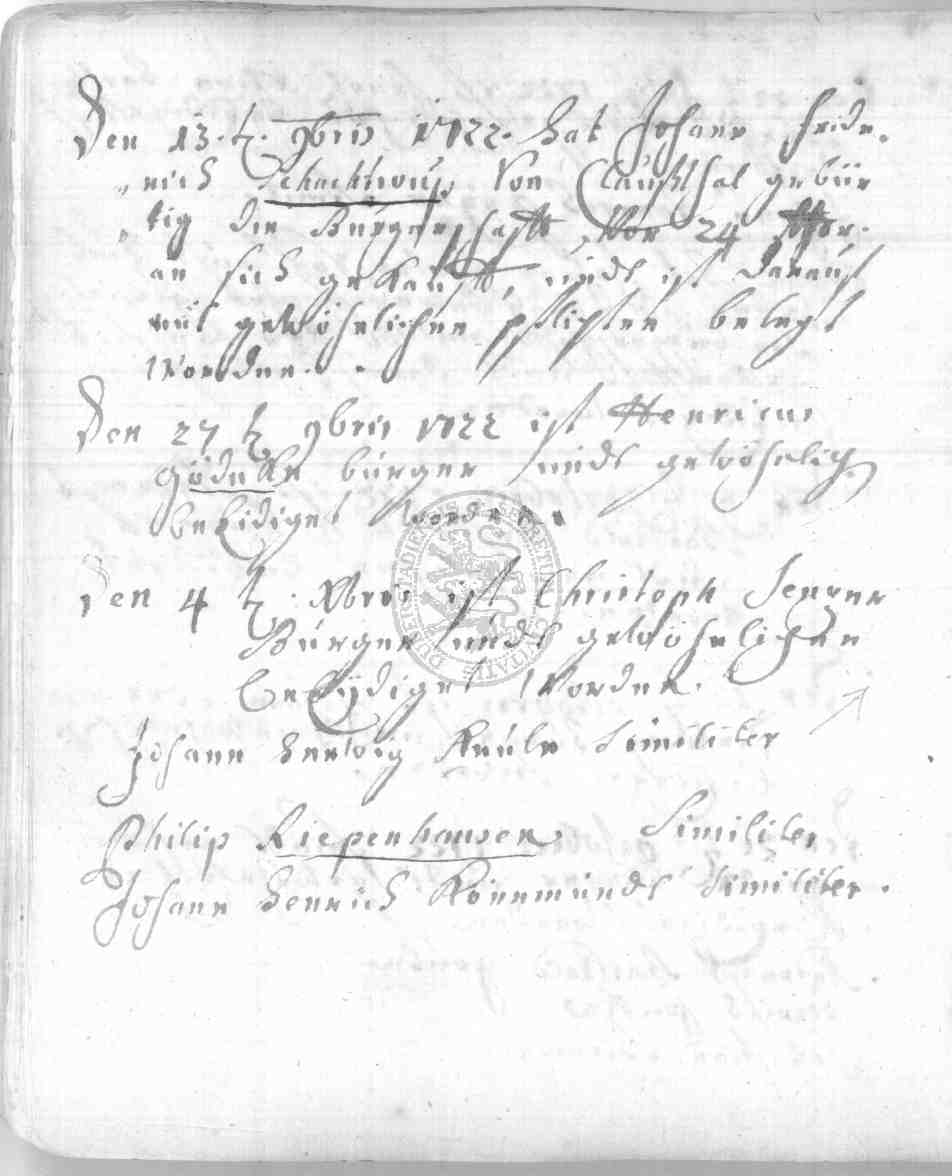 Den 13 t. 9bris 1722 hat Johann Fride-
rich Schachtrup Von Claußthal gebür
tig die Bürgerschafft Vor 24 Mgr.
an sich gekaufft, undt ist darauf
mit gewöhnlichen pflichten belegt
Worden.
Den 27 t 9bris 1722 ist Henricus
Gödeke bürger undt gewöhnlich
beeidiget worden.
Den 4 t. Xbris ist Christoph
Bürger undt gewöhnlichen
beeÿdiget Worden.
Johann Herwig Keule Similiter
Philip Riepenhausen Similiter
Johann Henrich Similiter.